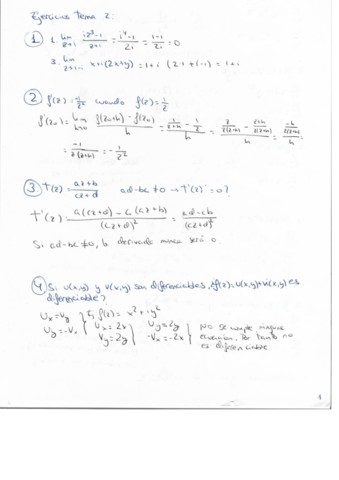 Ejercicios Tema 2:
① 1. lim z→i (iz³-1)/(z+i) = (i⁴-1)/2i = (1-1)/2i = 0
3. lim z→1-i x+i(2x+y) = 1+i (2·1+(-1)) = 1+i
② f'(z) = -1/z² cuando f(z) = 1/z
f'(z₀) = lim h→0 (f(z₀+h) - f(z₀))/h = (1/(z+h) - 1/z)/h = (z/(z(z+h)) - (z+h)/(z(z+h)))/h = (-h/(z(z+h)))/h =
= -1/(z(z+h)) = -1/z²
③ T(z) = (az+b)/(cz+d) ad-bc ≠ 0 → T'(z) = 0?
T'(z) = (a(cz+d) - c(az+b))/(cz+d)² = (ad-cb)/(cz+d)²
Si ad-bc ≠ 0, la derivada nunca será 0.
④ Si u(x,y) y v(x,y) son diferenciables, ¿f(z)=u(x,y)+iv(x,y) es
diferenciable?
Ux = Vy Ej f(z) = x² + iy²
Uy = -Vx Ux = 2x Vy = 2y No se cumple ninguna
ecuación. Por tanto no
es diferenciable